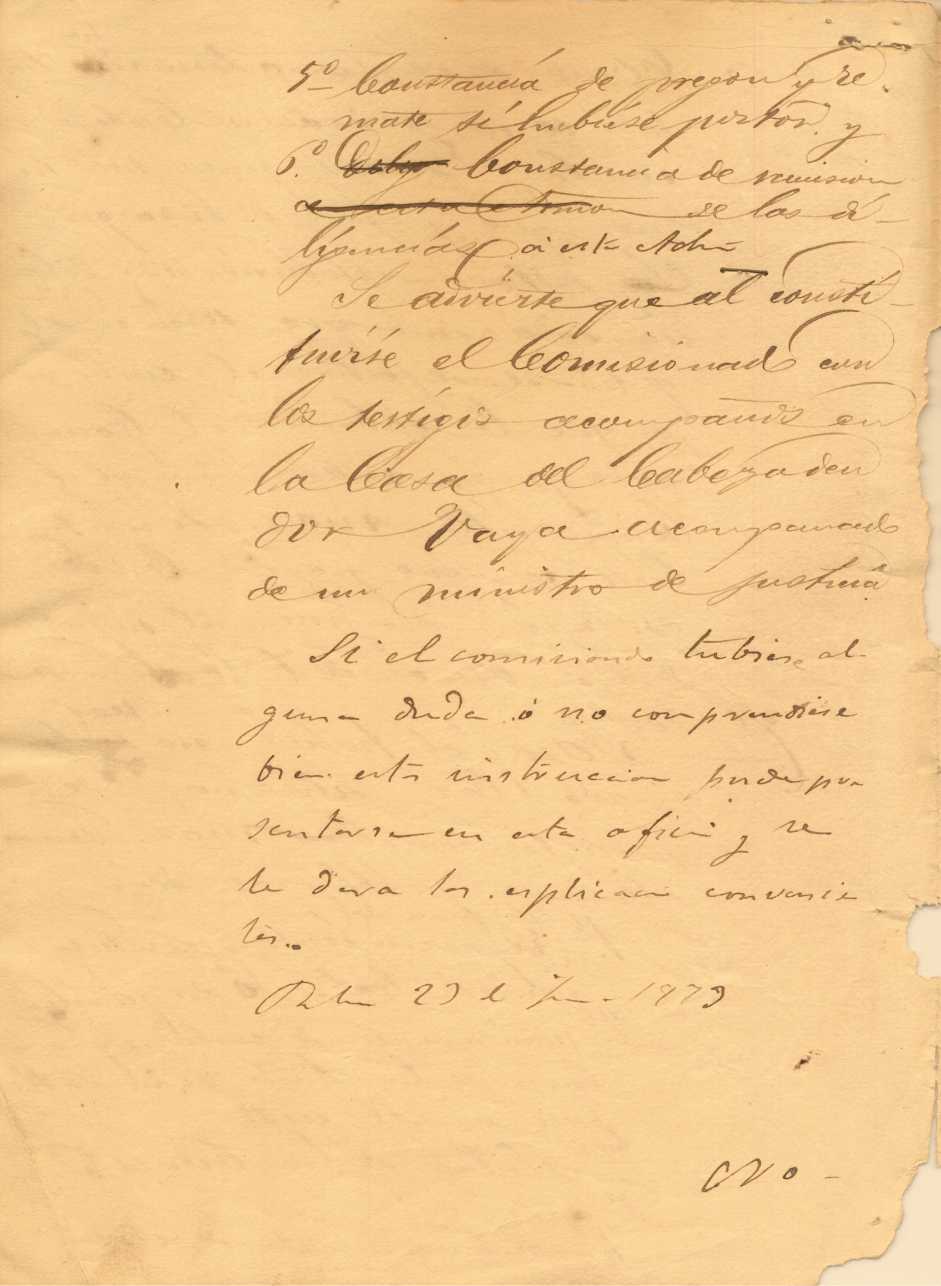 5º Constancia de pregon y re-
mate si hubiese postor. y
6º. Constancia de remision
de las di-
ligencias á esta Admn
Se advierte que al consti-
tuirse el Comisionado con
los testigos acompañds en
la Casa del Cabeza deu
dor Vaya acompanado
de un ministro de justicia
Si el comisionado tubiese al-
guna duda ó no comprendiese
bien esta instruccion puede pre
sentarse en esta oficina y se
le dara las esplicacion convenien
tes.
23 de 1879